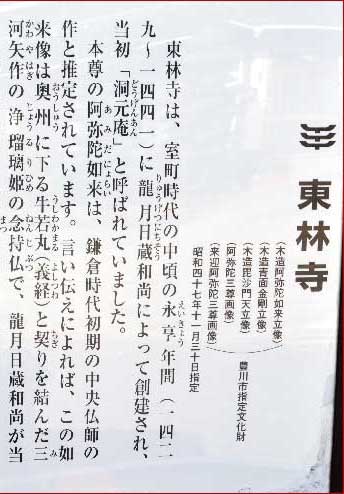 東林寺
(木造阿弥陀如来立像)
(木造青面金剛立像)
(木造毘沙門天立像)
(阿弥陀三尊画像)
(来迎阿弥陀三尊画像)
豊川市指定文化財
昭和四十七年十一月三十日指定
東林寺は、室町時代の中頃の永享年間(一四二
九〜一四四一)に龍月日蔵和尚によって創建され、
当初「洞元庵」と呼ばれていました。
本尊の阿弥陀如来は、鎌倉時代初期の中央仏師の
作と推定されています。言い伝えによれば、この如
来像は奥州に下る牛若丸(義経)と契りを結んだ三
河矢作の浄瑠璃姫の念持仏で、龍月日蔵和尚が当